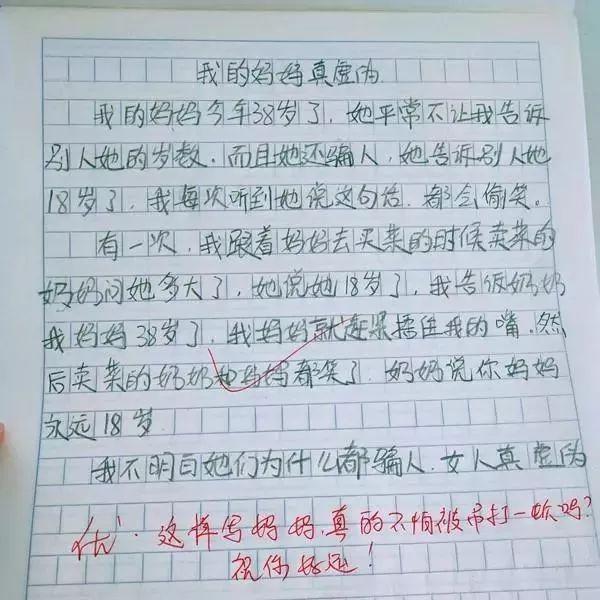 我的妈妈真虚伪
我的妈妈今年38岁了，她平常不让我告诉
别人她的岁数，而且她还骗人，她告诉别人她
18岁了，我每次听到她说这句话，都会偷笑。
有一次，我跟着妈妈去买菜的时候卖菜的
奶奶问她多大了，她说她18岁了，我告诉奶奶
我妈妈38岁了，我妈妈就赶紧捂住我的嘴，然
后卖菜的奶奶和妈妈都笑了，奶奶说你妈妈
永远18岁
我不明白她们为什么都骗人，女人真虚伪
优⁻．这样写妈妈，真的不怕被吊打一顿吗？
祝你好运！